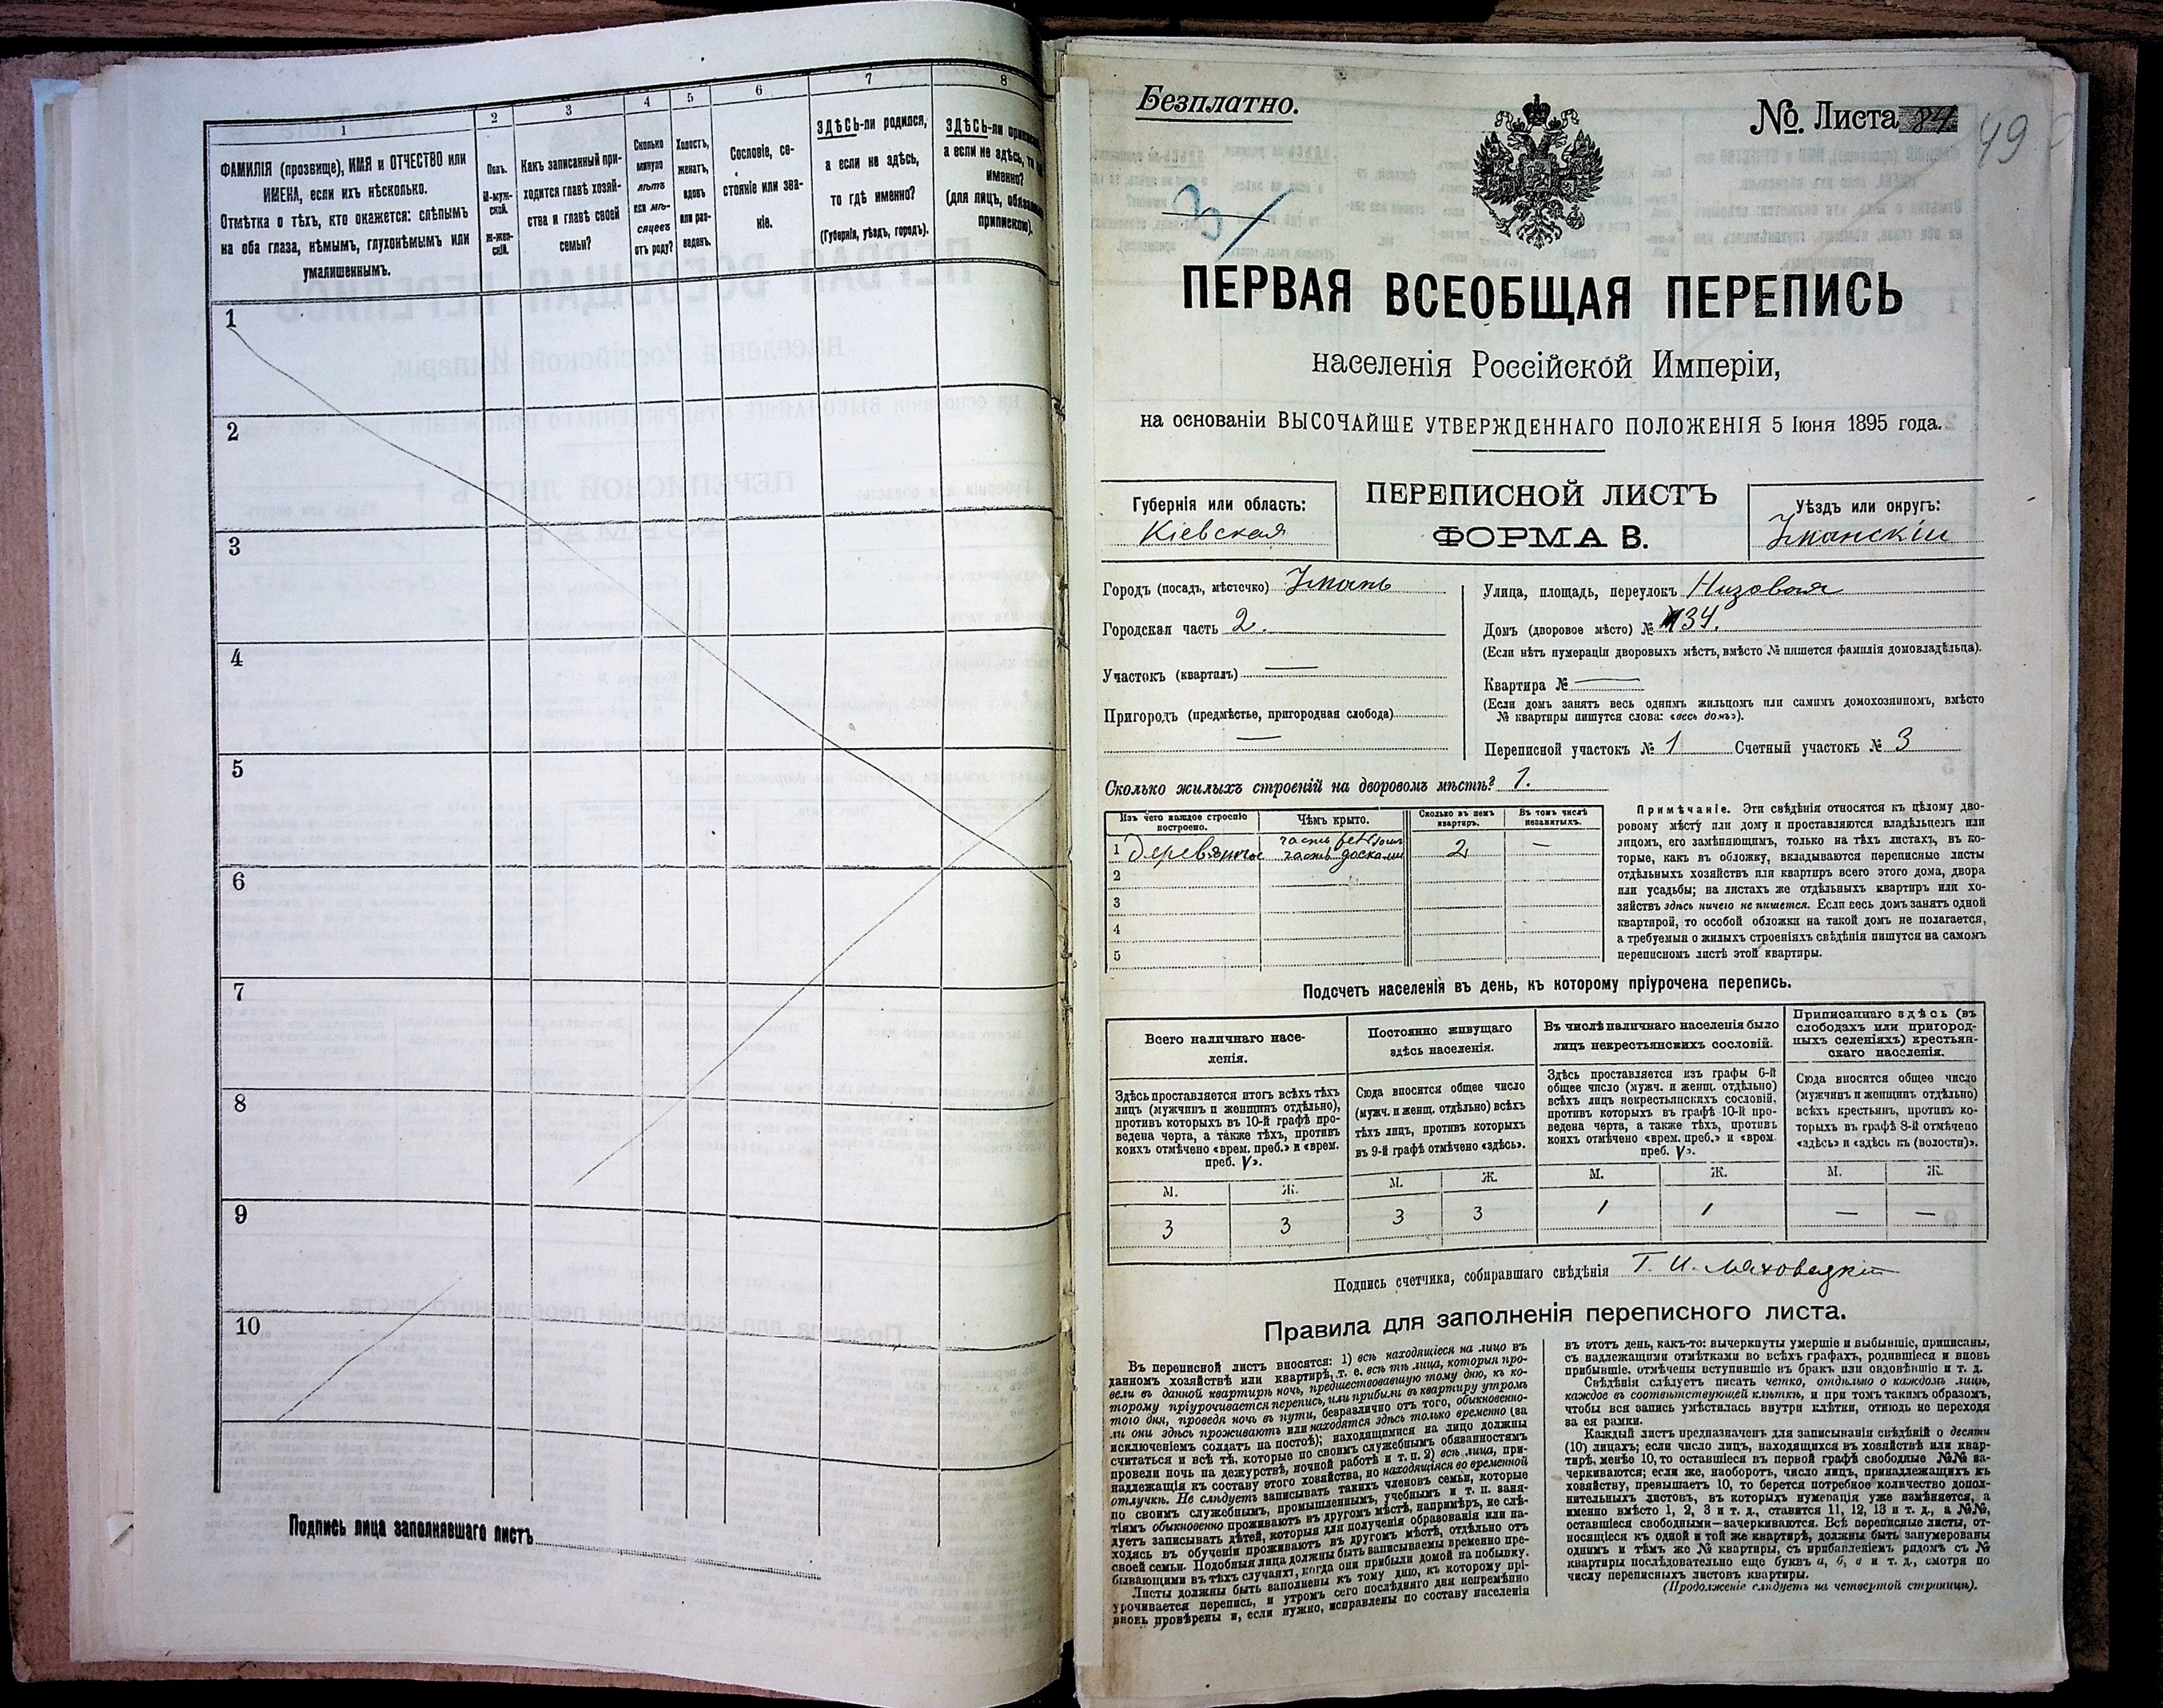 1
2
3
4
5
6
7
8
ФАМИЛІЯ (прозвище), ИМЯ и ОТЧЕСТВО или
ИМЕНА, если ихъ нѣсколько.
Отмѣтка о тѣхъ, кто окажется: слѣпымъ
на оба глаза, нѣмымъ, глухонѣмымъ или
умалишеннымъ.
Полъ.
М-муж-
ской.
Ж-жен-
скій.
Какъ записанный при-
ходится главѣ хозяй-
ства и главѣ своей
семьи?
Сколько
минуло
лѣтъ
или мѣ-
сяцевъ
отъ роду?
Холостъ,
женатъ,
вдовъ
или раз-
веденъ.
Сословіе, со-
стояніе или зва-
ніе.
ЗДѢСЬ-ли родился,
а если не здѣсь,
то гдѣ именно?
(Губернія, уѣздъ, городъ).
ЗДѢСЬ-ли
а если не здѣсь, то
именно?
(для лицъ,
припиской).
1
2
3
4
5
6
7
8
9
10
Подпись лица заполнявшаго листъ
Безплатно.
№. Листа 84
49
3
ПЕРВАЯ ВСЕОБЩАЯ ПЕРЕПИСЬ
населенія Россійской Имперіи,
на основаніи ВЫСОЧАЙШЕ УТВЕРЖДЕННАГО ПОЛОЖЕНІЯ 5 Іюня 1895 года.
Губернія или область:
Кіевская
ПЕРЕПИСНОЙ ЛИСТЪ
ФОРМА В.
Уѣздъ или округъ:
Уманскій
Городъ (посадъ, мѣстечко) Умань
Городская часть 2.
Участокъ (кварталъ) —
Пригородъ (предмѣстье, пригородная слобода)
—
Улица, площадь, переулокъ Низовая
Домъ (дворовое мѣсто) № 34.
(Если нѣтъ нумераціи дворовыхъ мѣстъ, вмѣсто № пишется фамилія домовладѣльца).
Квартира № —
(Если домъ занятъ весь однимъ жильцомъ или самимъ домохозяиномъ, вмѣсто
№ квартиры пишутся слова: «весь домъ»).
Переписной участокъ № 1 Счетный участокъ № 3
Сколько жилыхъ строеній на дворовомъ мѣстѣ? 1.
Изъ чего каждое строеніе
построено.
Чѣмъ крыто.
Сколько въ немъ
квартиръ.
Въ томъ числѣ
незанятыхъ.
1 деревянное
часть
часть досками
2
—
2
3
4
5
Примѣчаніе. Эти свѣдѣнія относятся къ цѣлому дво-
ровому мѣсту или дому и проставляются владѣльцемъ или
лицомъ, его замѣняющимъ, только на тѣхъ листахъ, въ ко-
торые, какъ въ обложку, вкладываются переписные листы
отдѣльныхъ хозяйствъ или квартиръ всего этого дома, двора
или усадьбы; на листахъ же отдѣльныхъ квартиръ или хо-
зяйствъ здѣсь ничего не пишется. Если весь домъ занятъ одной
квартирой, то особой обложки на такой домъ не полагается,
а требуемыя о жилыхъ строеніяхъ свѣдѣнія пишутся на самомъ
переписномъ листѣ этой квартиры.
Подсчетъ населенія въ день, къ которому пріурочена перепись.
Всего наличнаго насе-
ленія.
Постоянно живущаго
здѣсь населенія.
Въ числѣ наличнаго населенія было
лицъ некрестьянскихъ сословій.
Приписаннаго здѣсь (въ
слободахъ или пригород-
ныхъ селеніяхъ) крестьян-
скаго населенія.
Здѣсь проставляется итогъ всѣхъ тѣхъ
лицъ (мужчинъ и женщинъ отдѣльно),
противъ которыхъ въ 10-й графѣ про-
ведена черта, а также тѣхъ, противъ
коихъ отмѣчено «врем. преб.» и «врем.
преб. V».
Сюда вносится общее число
(мужч. и женщ. отдѣльно) всѣхъ
тѣхъ лицъ, противъ которыхъ
въ 9-й графѣ отмѣчено «здѣсь».
Здѣсь проставляется изъ графы 6-й
общее число (мужч. и женщ. отдѣльно)
всѣхъ лицъ некрестьянскихъ сословій,
противъ которыхъ въ графѣ 10-й про-
ведена черта, а также тѣхъ, противъ
коихъ отмѣчено «врем. преб.» и «врем.
преб. V».
Сюда вносится общее число
(мужчинъ и женщинъ отдѣльно)
всѣхъ крестьянъ, противъ ко-
торыхъ въ графѣ 8-й отмѣчено
«здѣсь» и «здѣсь къ (волости)».
М. Ж. М. Ж. М. Ж. М. Ж.
3 3 3 3 1 1 — —
Подпись счетчика, собиравшаго свѣдѣнія Т. И. Маховецкій
Правила для заполненія переписного листа.
Въ переписной листъ вносятся: 1) всѣ находящіеся на лицо въ
данномъ хозяйствѣ или квартирѣ, т. е. всѣ тѣ лица, которыя про-
вели въ данной квартирѣ ночь, предшествовавшую тому дню, къ ко-
торому пріурочивается перепись, или прибыли въ квартиру утромъ
того дня, проведя ночь въ пути, безразлично отъ того, обыкновенно-
ли они здѣсь проживаютъ или находятся здѣсь только временно (за
исключеніемъ солдатъ на постоѣ); находящимися на лицо должны
считаться и всѣ тѣ, которые по своимъ служебнымъ обязанностямъ
провели ночь на дежурствѣ, ночной работѣ и т. п. 2) всѣ лица, при-
надлежащія къ составу этого хозяйства, но находящіяся во временной
отлучкѣ. Не слѣдуетъ записывать такихъ членовъ семьи, которые
по своимъ служебнымъ, промышленнымъ, учебнымъ и т. п. заня-
тіямъ обыкновенно проживаютъ въ другомъ мѣстѣ, напримѣръ, не слѣ-
дуетъ записывать дѣтей, которыя для полученія образованія или на-
ходясь въ обученіи проживаютъ въ другомъ мѣстѣ, отдѣльно отъ
своей семьи. Подобныя лица должны быть записываемы временно пре-
бывающими въ тѣхъ случаяхъ, когда они прибыли домой на побывку.
Листы должны быть заполнены къ тому дню, къ которому прі-
урочивается перепись, и утромъ сего послѣдняго дня непремѣнно
вновь провѣрены и, если нужно, исправлены по составу населенія
въ этотъ день, какъ-то: вычеркнуты умершіе и выбывшіе, приписаны,
съ надлежащими отмѣтками во всѣхъ графахъ, родившіеся и вновь
прибывшіе, отмѣчены вступившіе въ бракъ или овдовѣвшіе и т. д.
Свѣдѣнія слѣдуетъ писать четко, отдѣльно о каждомъ лицѣ,
каждое въ соотвѣтствующей клѣткѣ, и при томъ такимъ образомъ,
чтобы вся запись умѣстилась внутри клѣтки, отнюдь не переходя
за ея рамки.
Каждый листъ предназначенъ для записыванія свѣдѣній о десяти
(10) лицахъ; если число лицъ, находящихся въ хозяйствѣ или квар-
тирѣ, менѣе 10, то оставшіеся въ первой графѣ свободные №№ за-
черкиваются; если же, наоборотъ, число лицъ, принадлежащихъ къ
хозяйству, превышаетъ 10, то берется потребное количество допол-
нительныхъ листовъ, въ которыхъ нумерація уже измѣняется, а
именно вмѣсто 1, 2, 3 и т. д., ставится 11, 12, 13 и т. д., а №№,
оставшіеся свободными—зачеркиваются. Всѣ переписные листы, от-
носящіеся къ одной и той же квартирѣ, должны быть занумерованы
однимъ и тѣмъ же № квартиры, съ прибавленіемъ рядомъ съ №
квартиры послѣдовательно еще буквъ а, б, в и т. д., смотря по
числу переписныхъ листовъ квартиры.
(Продолженіе слѣдуетъ на четвертой страницѣ).